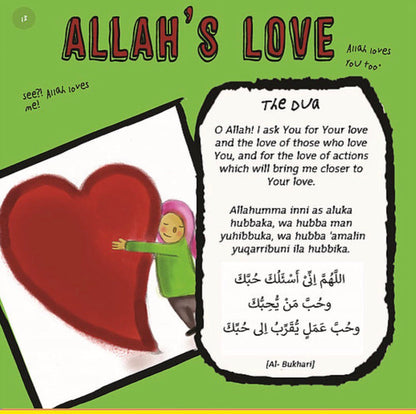 12
ALLAH'S LOVE
Allah loves
YOU too
see?! Allah loves
me!
The Dua
O Allah! I ask You for Your love
and the love of those who love
You, and for the love of actions
which will bring me closer to
Your love.
Allahumma inni as aluka
hubbaka, wa hubba man
yuhibbuka, wa hubba 'amalin
yuqarribuni ila hubbika.
اللَّهُمَّ اِنِّىْ أَسْئَلُكَ حُبَّكَ
وحُبَّ مَنْ يُّحِبُّكَ
وحُبَّ عَمَلٍ يُّقَرِّبُ اِلى حُبِّكَ
[Al- Bukhari]